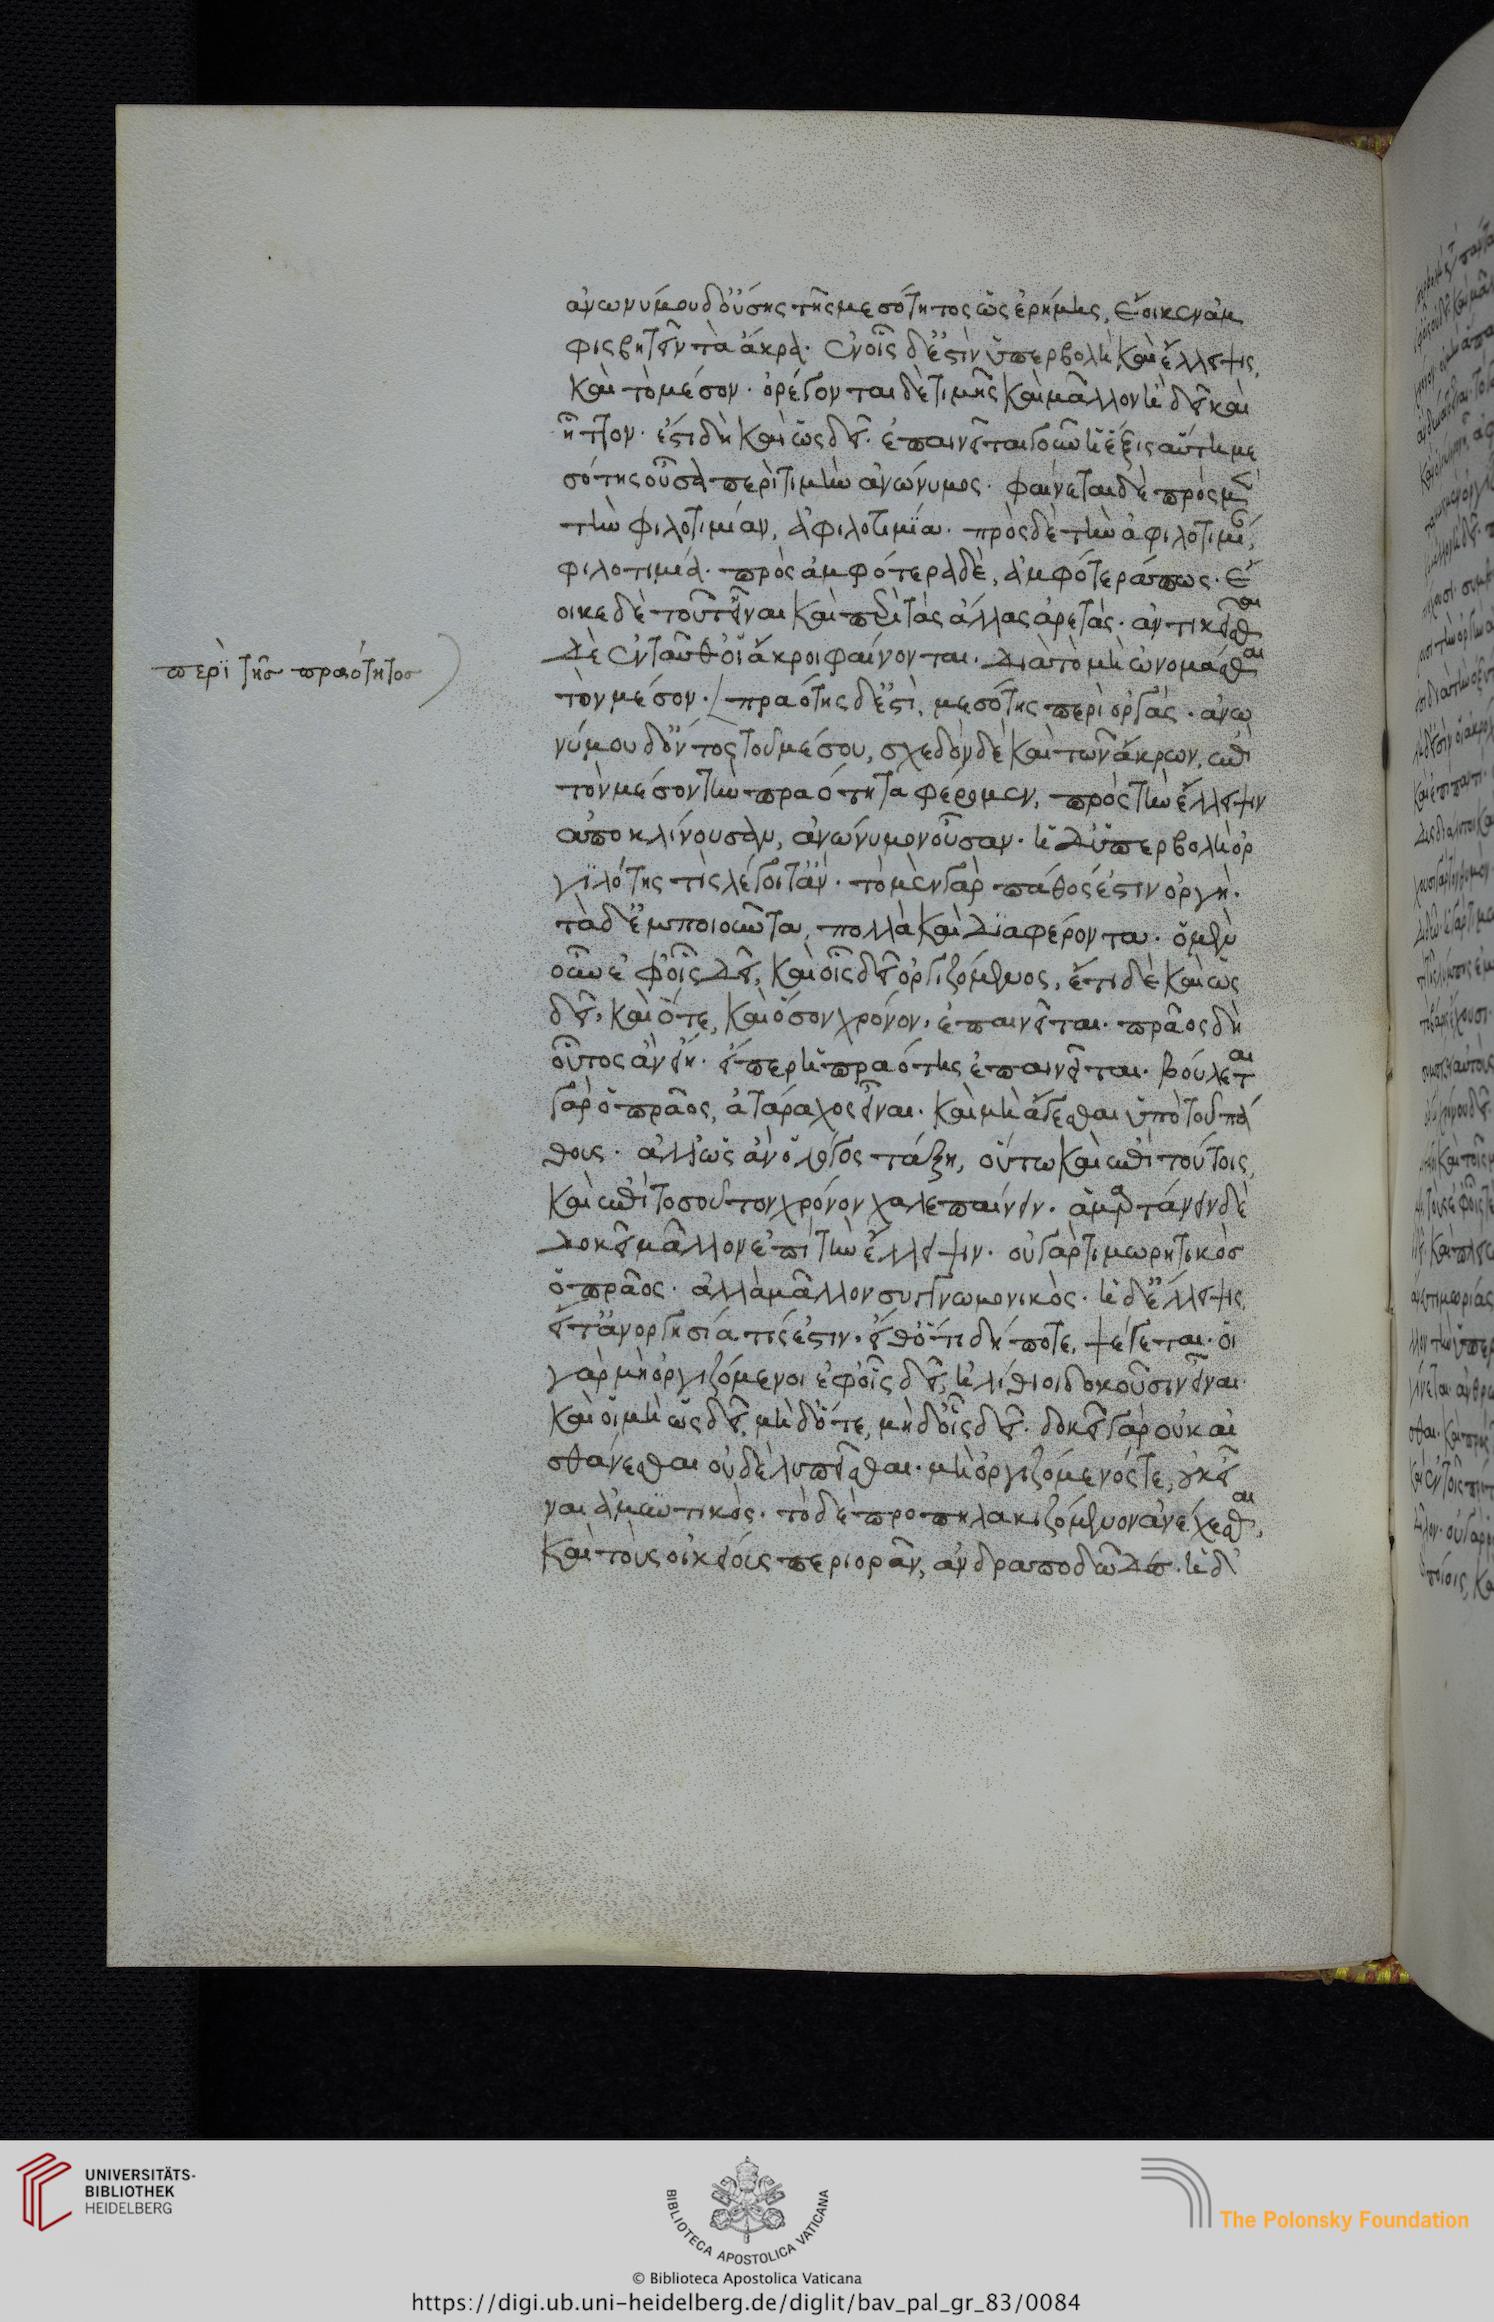 ἀνωνύμου δ' οὔσης τῆς μεσότητος ὡς ἐρήμης, ἔοικεν ἀμ
φισβητεῖν τὰ ἄκρα. ἐν οἷς δ' ἐστὶν ὑπερβολὴ καὶ ἔλλειψις,
καὶ τὸ μέσον. ὀρέγονται δὲ τιμῆς καὶ μᾶλλον ἢ δεῖ καὶ
ἧττον. ἔστι δὴ καὶ ὡς δεῖ. ἐπαινεῖται γοῦν ἡ ἕξις αὕτη με
σότης οὖσα περὶ τιμὴν ἀνώνυμος. φαίνεται δὲ πρὸς μὲν
τὴν φιλοτιμίαν, ἀφιλοτιμία. πρὸς δὲ τὴν ἀφιλοτιμίαν,
φιλοτιμία. πρὸς ἀμφότερα δὲ, ἀμφότερά πως. ἔ
οικε δὲ τοῦτ' εἶναι καὶ περὶ τὰς ἄλλας ἀρετάς. ἀντικεῖσθαι
δὲ ἐνταῦθ' οἱ ἄκροι φαίνονται. διὰ τὸ μὴ ὠνομάσθαι
τὸν μέσον. / πραότης δ' ἐστὶ, μεσότης περὶ ὀργάς. ἀνω
νύμου δ' ὄντος τοῦ μέσου, σχεδὸν δὲ καὶ τῶν ἄκρων, ἐπὶ
τὸν μέσον τὴν πραότητα φέρομεν, πρὸς τὴν ἔλλειψιν
ἀποκλίνουσαν, ἀνώνυμον οὖσαν. ἡ δ' ὑπερβολὴ ὀρ
γιλότης τὶς λέγοιτ' ἄν. τὸ μὲν γὰρ πάθος ἐστιν ὀργή.
τὰ δ' ἐμποιοῦντα, πολλὰ καὶ διαφέροντα. ὁ μὲν
οὖν ἐφ' οἷς δεῖ, καὶ οἷς δεῖ ὀργιζόμενος, ἔτι δὲ καὶ ὡς
δεῖ, καὶ ὅτε, καὶ ὅσον χρόνον, ἐπαινεῖται. πρᾶος δὴ
οὗτος ἂν εἴη. εἴπερ ἡ πραότης ἐπαινεῖται. βούλεται
γὰρ ὁ πρᾶος, ἀτάραχος εἶναι. καὶ μὴ ἄγεσθαι ὑπὸ τοῦ πά
θους. ἀλλ' ὡς ἂν ὁ λόγος τάξη, οὕτω καὶ ἐπὶ τούτοις,
καὶ ἐπὶ τοσοῦτον χρόνον χαλεπαίνειν. ἁμαρτάνειν δὲ
δοκεῖ μᾶλλον ἐπὶ τὴν ἔλλειψιν. οὐ γὰρ τιμωρητικὸς
ὁ πρᾶος. ἀλλὰ μᾶλλον συγγνωμονικὸς. ἡ δ' ἔλλειψις,
εἴτ' ἀοργησία τίς ἐστιν. εἴθ' ὅτι δή ποτε, ψέγεται. οἱ
γὰρ μὴ ὀργιζόμενοι ἐφ' οἷς δεῖ, ἠλίθιοι δοκοῦσιν εἶναι.
καὶ οἱ μὴ ὡς δεῖ, μὴ δ' ὅτε, μὴ δ' οἷς δεῖ. δοκεῖ γὰρ οὐκ αἰ
σθάνεσθαι οὐδὲ λυπεῖσθαι. μὴ ὀργιζόμενός τε, οὐκ εἶ
ναι ἀμυντικὸς. τὸ δὲ προπηλακιζόμενον ἀνέχεσθαι,
καὶ τοὺς οἰκείους περιορᾶν, ἀνδραποδῶδες. ἡ δ'
περὶ τῆς πραότητος
UNIVERSITÄTS-
BIBLIOTHEK
HEIDELBERG
BIBLIOTECA APOSTOLICA VATICANA
The Polonsky Foundation
© Biblioteca Apostolica Vaticana
https://digi.ub.uni-heidelberg.de/diglit/bav_pal_gr_83/0084